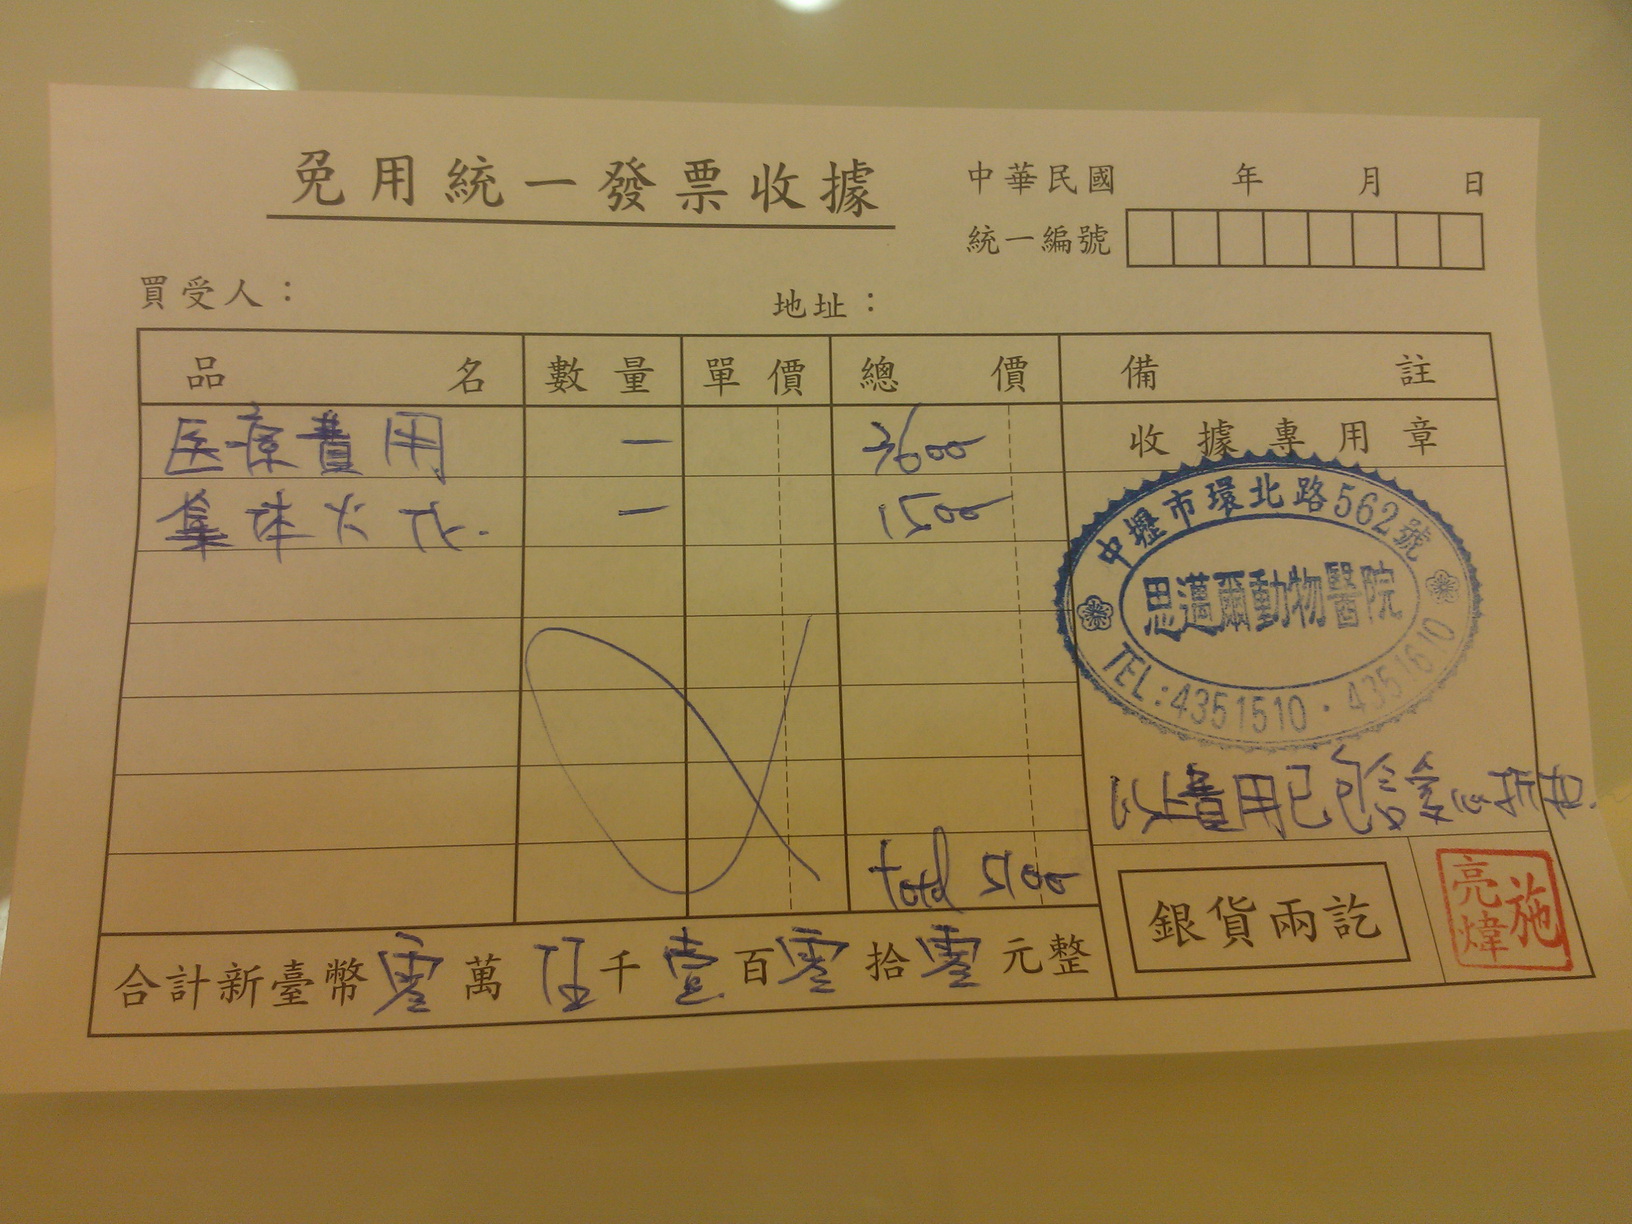 免用統一發票收據
中華民國 年 月 日
統一編號
買受人： 地址：
品名 數量 單價 總價 備註
医療費用 一 3600 收據專用章
集体火化. 一 1500
中壢市環北路562號
思邁爾動物醫院
TEL:4351510·4351610
以上費用已包含愛心折扣.
total 5100
銀貨兩訖
施亮煒
合計新臺幣零萬伍千壹百零拾零元整